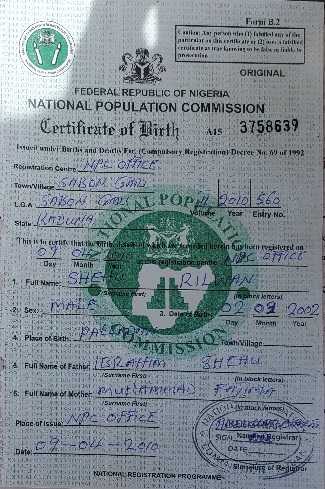 Form B.2
Caution: Any person who (1) falsified any of the
particular on this certificate or (2) uses a falsified
certificate as true knowing to be false is liable to
prosecution
ORIGINAL
FEDERAL REPUBLIC OF NIGERIA
NATIONAL POPULATION COMMISSION
Certificate of Birth A15 3758639
Issued under Births and Deaths Etc. (Compulsory Registration) Decree No. 69 of 1992
Registration Centre NPC OFFICE
Town/Village SABON GARI
L.G.A SABON GARI 11 2010 560
Volume Year Entry No.
State KADUNA
This is to certify that the birth, details of which are recorded herein has been registered on
09 04 2010 at the registration centre NPC OFFICE
Day Month Year
1. Full Name: SHEHU RILWAN
(Surname First) (in block letters)
2. Sex: MALE 3. Date of Birth: 02 02 2002
Day Month Year
4. Place of Birth:
Town/Village
5. Full Name of Father IBRAHIM SHEHU
(Surname First) (in block letters)
6. Full Name of Mother MUHAMMAD
(Surname First) (in block letters)
Place of issue: NPC OFFICE
Name of Registrar
SIGN
Date: 09-04-2010
DATE
Signature of Registrar
NATIONAL REGISTRATION PROGRAMME
NATIONAL POPULATION
COMMISSION